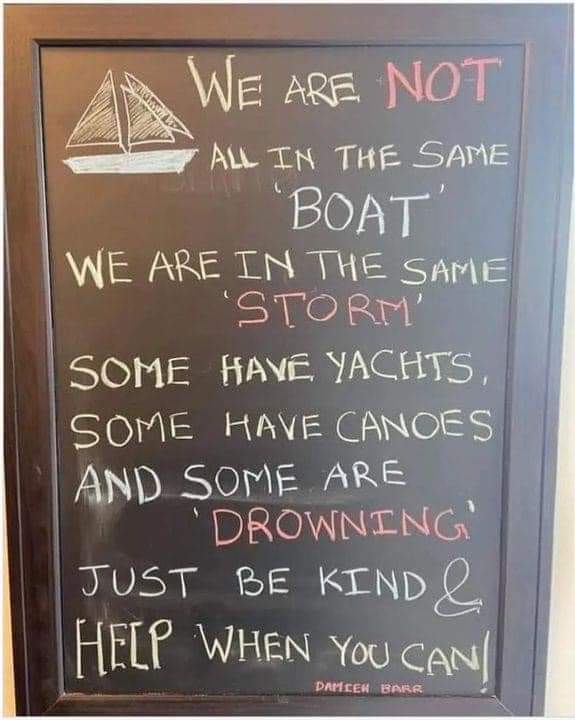 WE ARE NOT
ALL IN THE SAME
'BOAT'
WE ARE IN THE SAME
'STORM'
SOME HAVE YACHTS,
SOME HAVE CANOES
AND SOME ARE
'DROWNING'
JUST BE KIND &
HELP WHEN YOU CAN!
DAMIEN BARR